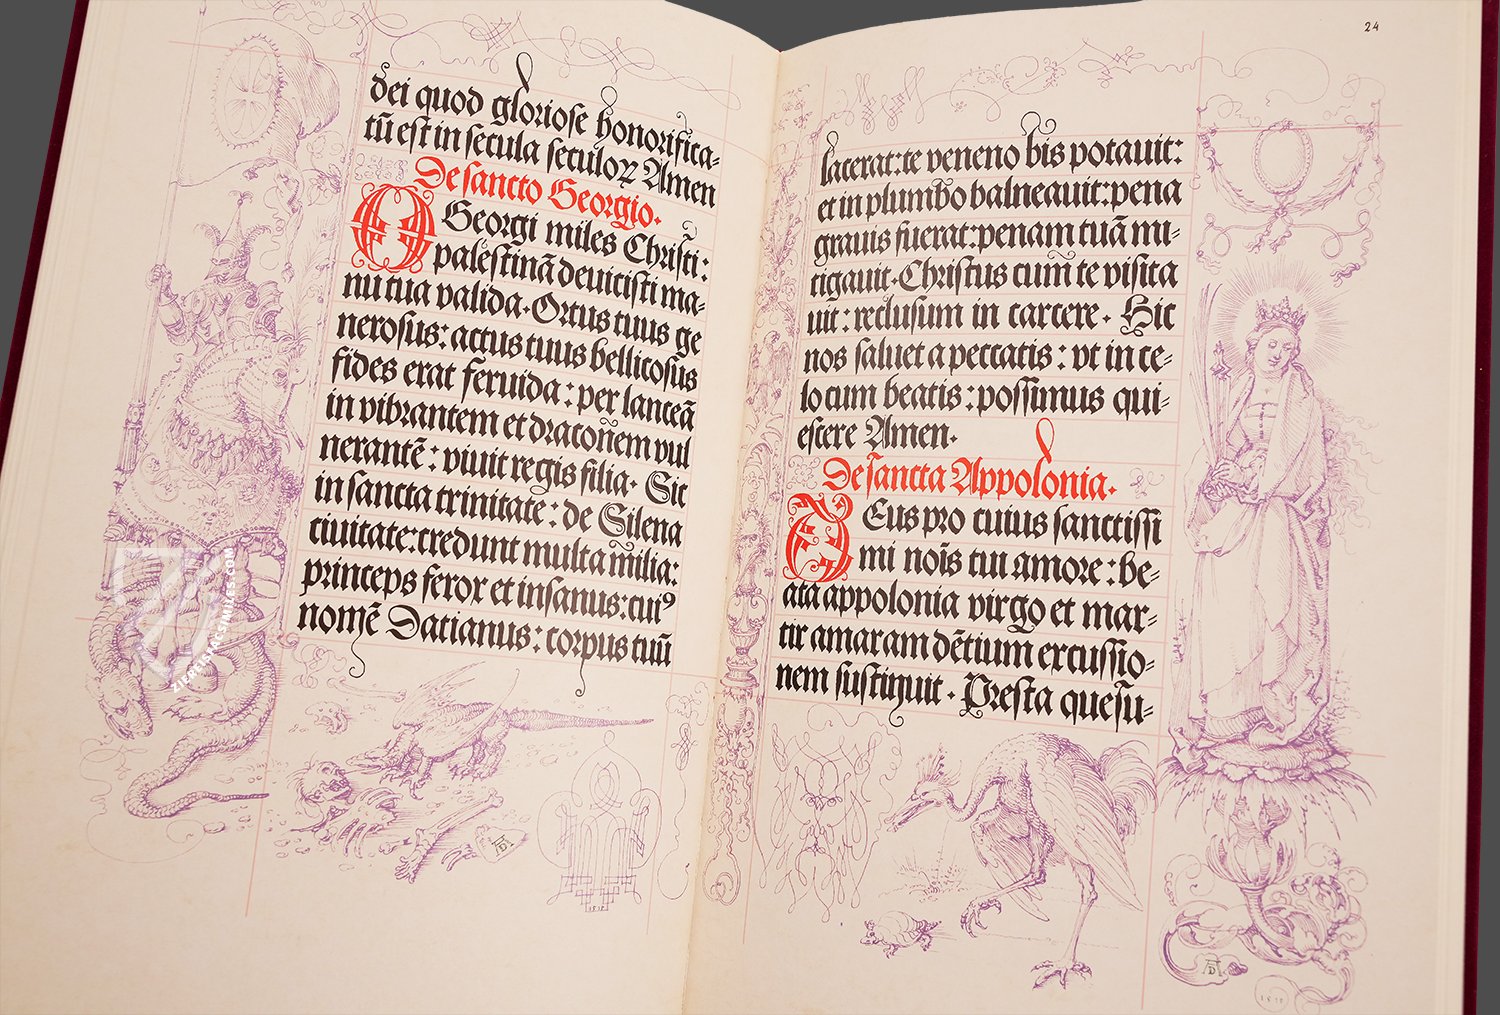 dei quod gloriose honorifica=
tū est in secula seculoꝝ Amen
De sancto Georgio.
O Georgi miles Christi:
palestinā deuicisti ma=
nu tua valida. Ortus tuus ge
nerosus: actus tuus bellicosus
fides erat feruida: per lanceā
in vibrantem et draconem vul
nerantē: viuit regis filia. Sic
in sancta trinitate: de Silena
ciuitate: credunt multa milia:
princeps ferox et insanus: cuiꝰ
nomē Dacianus: corpus tuū
24
lacerat: te veneno bis potauit:
et in plumbo balneauit: pena
grauis fuerat: penam tuā mi=
tigauit. Christus cum te visita
uit: reclusum in carcere. Hic
nos saluet a peccatis: vt in ce=
lo cum beatis: possimus qui=
escere Amen.
De sancta Appolonia.
DEus pro cuius sanctissi
mi noīs tui amore: be=
ata appolonia virgo et mar=
tir amaram dētium excussio=
nem sustinuit. Presta quesu=
AD
1515
AD
1515
ZIEREIS FACSIMILES.COM